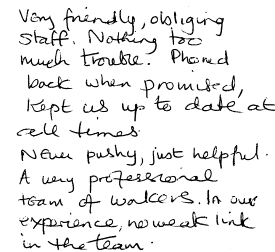 Very friendly, obliging
staff. Nothing too
much trouble. Phoned
back when promised,
kept us up to date at
all times
Never pushy, just helpful.
A very professional
team of workers. In our
experience, no weak link
in the team.